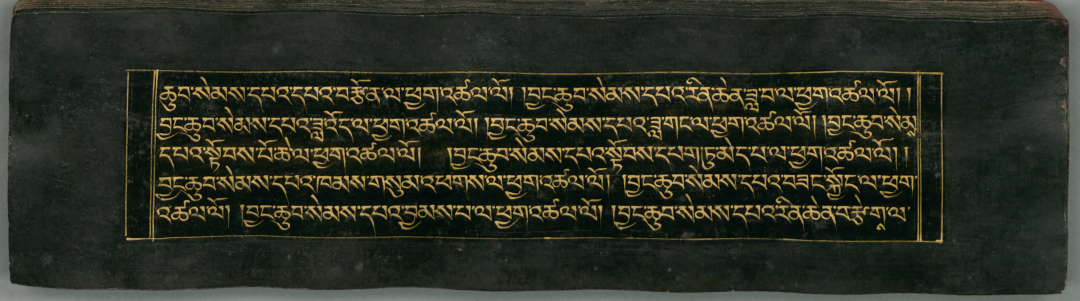 ཆུབ་སེམས་དཔའ་དཔའ་བརྩོན་ལ་ཕྱག་འཚལ་ལོ། །བྱང་ཆུབ་སེམས་དཔའ་རིན་ཆེན་ཟླ་བ་ལ་ཕྱག་འཚལ་ལོ། །
བྱང་ཆུབ་སེམས་དཔའ་ཟླ་འོད་ལ་ཕྱག་འཚལ་ལོ། །བྱང་ཆུབ་སེམས་དཔའ་ཟླ་གང་ལ་ཕྱག་འཚལ་ལོ། །བྱང་ཆུབ་སེམས་
དཔའ་སྟོབས་པོ་ཆེ་ལ་ཕྱག་འཚལ་ལོ། །བྱང་ཆུབ་སེམས་དཔའ་སྟོབས་དཔག་ཏུ་མེད་པ་ལ་ཕྱག་འཚལ་ལོ། །
བྱང་ཆུབ་སེམས་དཔའ་ཁམས་གསུམ་འཕགས་ལ་ཕྱག་འཚལ་ལོ། །བྱང་ཆུབ་སེམས་དཔའ་བཟང་སྐྱོང་ལ་ཕྱག་
འཚལ་ལོ། །བྱང་ཆུབ་སེམས་དཔའ་བྱམས་པ་ལ་ཕྱག་འཚལ་ལོ། །བྱང་ཆུབ་སེམས་དཔའ་རིན་ཆེན་